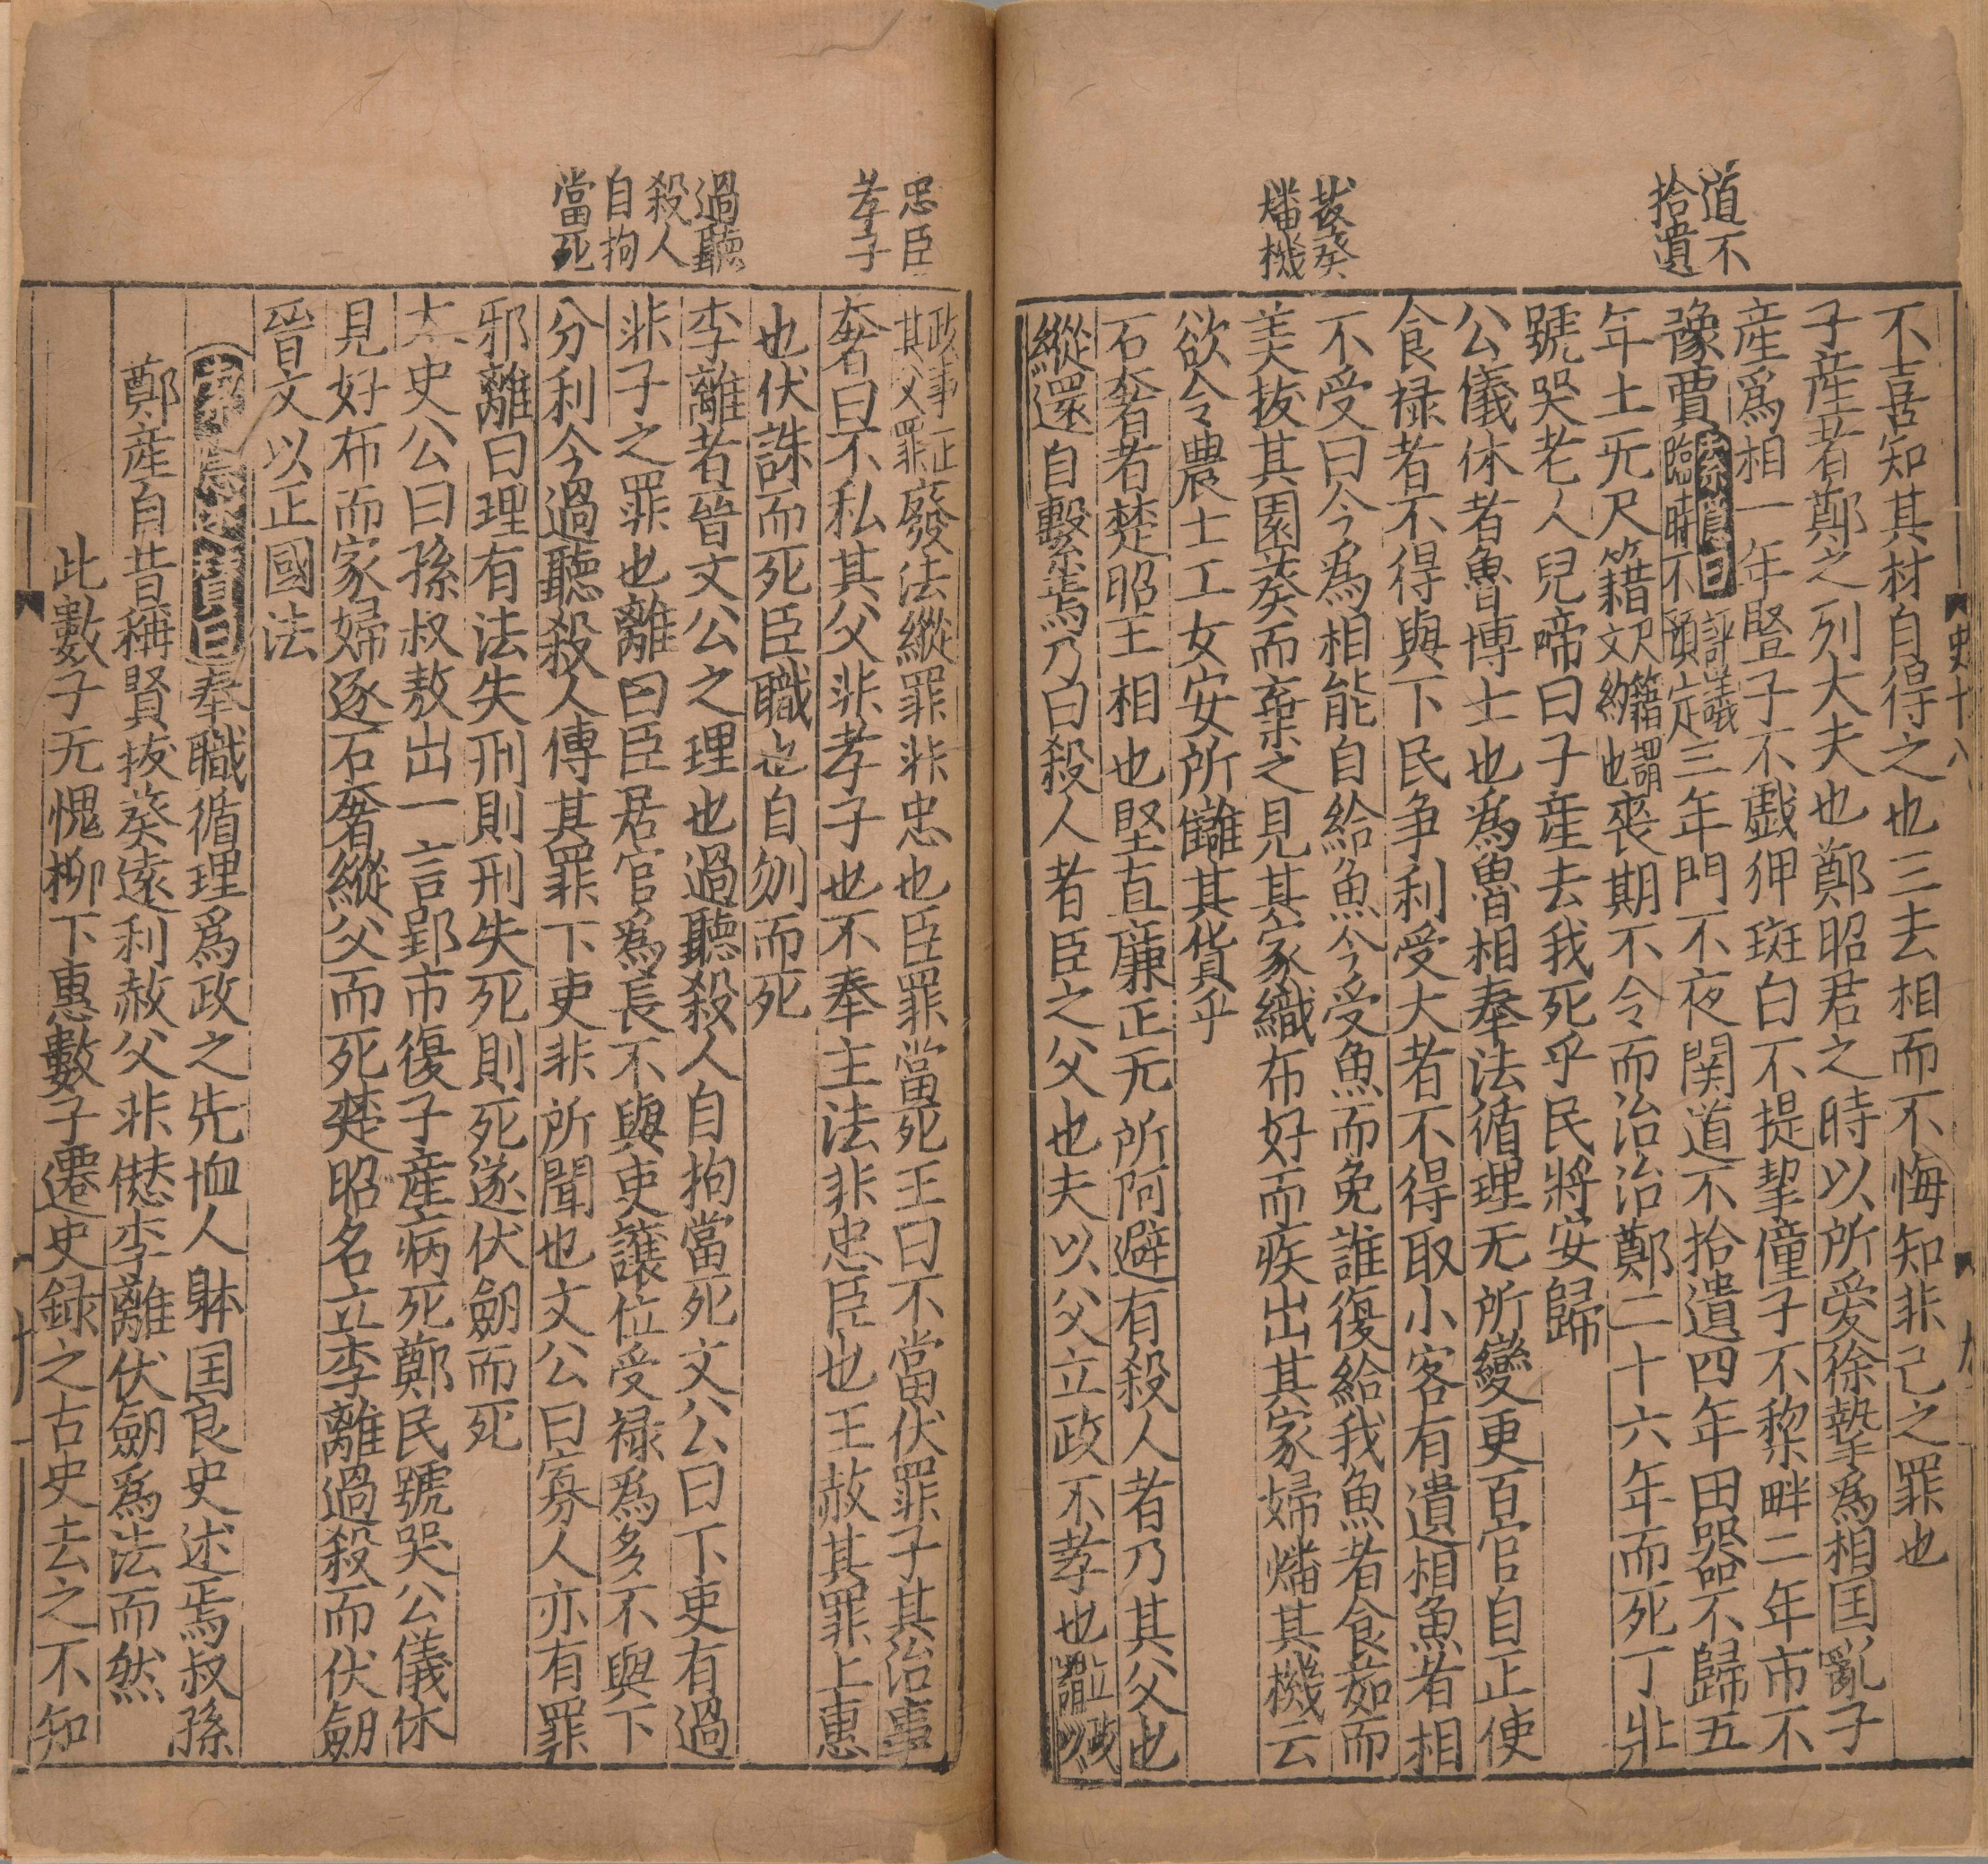 道不
拾遺
拔葵
燔機
不喜知其材自得之也三去相而不悔知非己之罪也
子産者鄭之列大夫也鄭昭君之時以所愛徐摯爲相囯亂子
産爲相一年豎子不戲狎斑白不提挈僮子不犂畔二年市不
豫賈索隱曰評議
臨時不預定三年門不夜関道不拾遺四年田器不歸五
年士无尺籍尺籍謂
文約也喪期不令而治治鄭二十六年而死丁壯
號哭老人兒啼曰子産去我死乎民將安歸
公儀休者魯博士也爲魯相奉法循理无所變更百官自正使
食禄者不得與下民争利受大者不得取小客有遺相魚者相
不受曰今爲相能自給魚今受魚而免誰復給我魚者食茹而
美拔其園葵而棄之見其家織布好而疾出其家婦燔其機云
欲令農士工女安所讎其貨乎
石奢者楚昭王相也堅直廉正无所阿避有殺人者乃其父也
縱還自繫焉乃白殺人者臣之父也夫以父立政不孝也立政
謂以
史十八
九
忠臣
孝子
過聽
殺人
自拘
當死
政事正
其父罪廢法縱罪非忠也臣罪當死王曰不當伏罪子其治事
奢曰不私其父非孝子也不奉主法非忠臣也王赦其罪上惠
也伏誅而死臣職也自刎而死
李離者晉文公之理也過聽殺人自拘當死文公曰下吏有過
非子之罪也離曰臣居官爲長不與吏讓位受禄爲多不與下
分利今過聽殺人傅其罪下吏非所聞也文公曰寡人亦有罪
邪離曰理有法失刑則刑失死則死遂伏劒而死
太史公曰孫叔敖出一言郢市復子産病死鄭民號哭公儀休
見好布而家婦逐石奢縱父而死楚昭名立李離過殺而伏劒
晉文以正國法
索隱述賛曰奉職循理爲政之先恤人躰囯良史述焉叔孫
鄭産自昔稱賢拔葵遠利赦父非愆李離伏劒爲法而然
此數子无愧柳下惠數子遷史録之古史去之不知